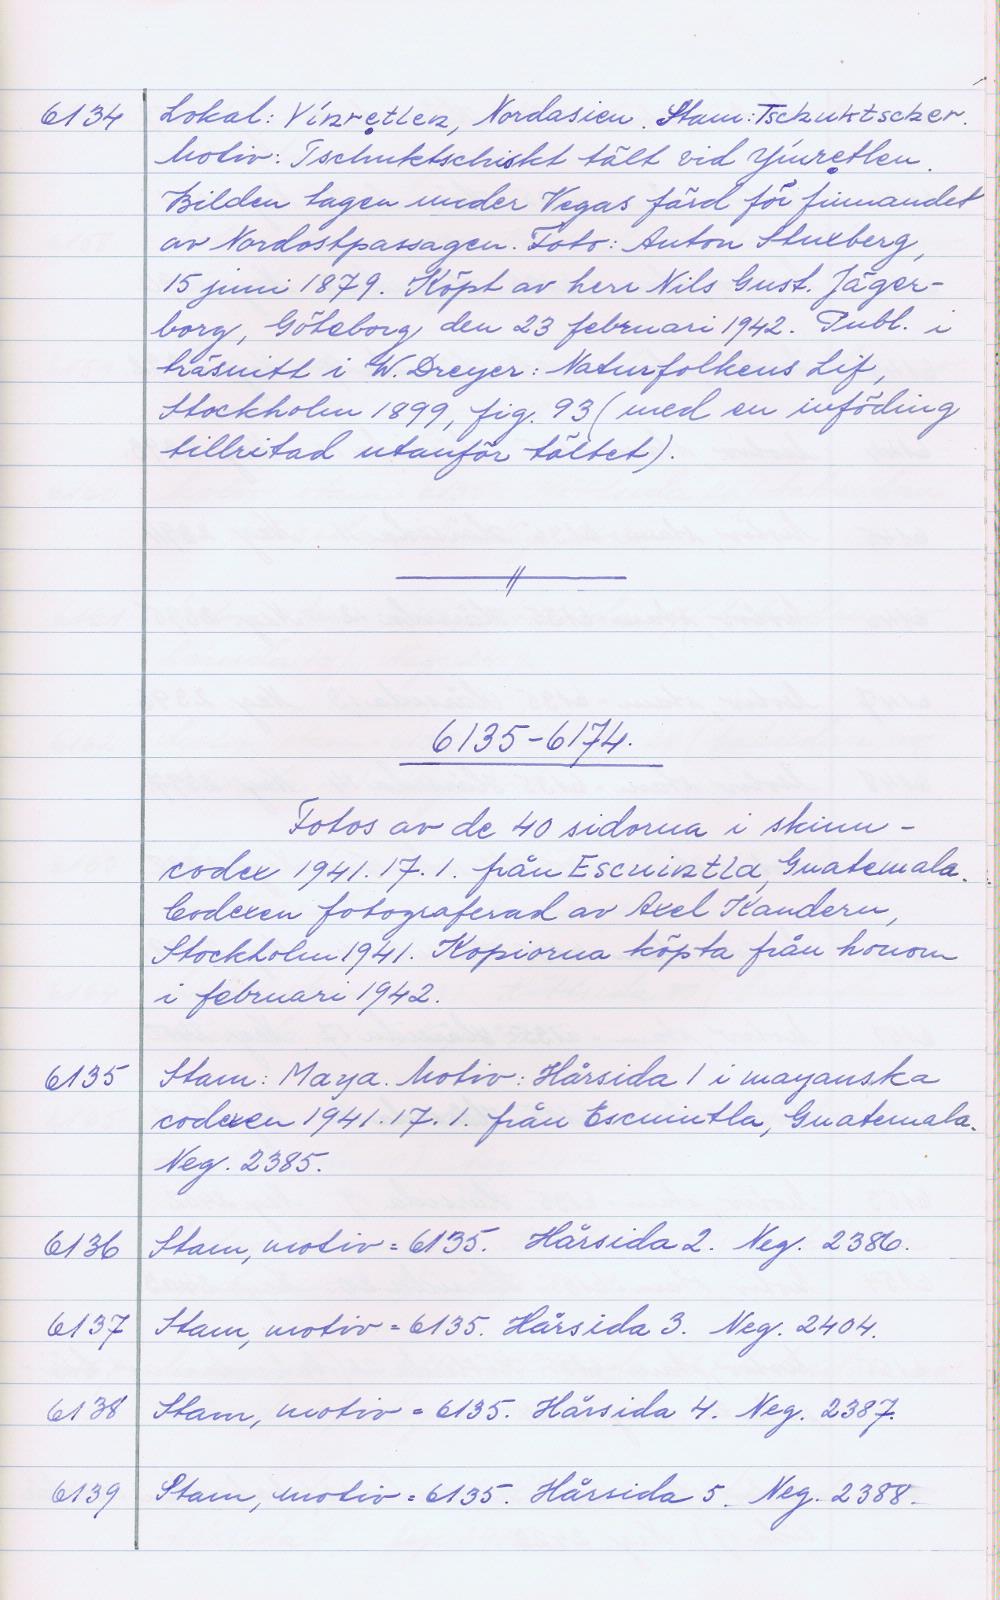 6134 Lokal: Yinretlen, Nordasien. Stam: Tschuktscher.
Motiv: Tschuktschiskt tält vid Yinretlen.
Bilden tagen under Vegas färd för finnandet
av Nordostpassagen. Foto: Anton Stuxberg,
15 juni 1879. Köpt av herr Nils Gust. Jäger-
borg, Göteborg den 23 februari 1942. Publ. i
träsnitt i W. Dreyer: Naturfolkens Lif,
Stockholm 1899, fig. 93 (med en inföding
tillritad utanför tältet).
6135-6174.
Fotos av de 40 sidorna i skinn-
codex 1941.17.1. från Escuintla, Guatemala.
Codexen fotograferad av Axel Kandern,
Stockholm 1941. Kopiorna köpta från honom
i februari 1942.
6135 Stam: Maya. Motiv: Hårsida 1 i mayanska
codexen 1941.17.1. från Escuintla, Guatemala.
Neg. 2385.
6136 Stam, motiv = 6135. Hårsida 2. Neg. 2386.
6137 Stam, motiv = 6135. Hårsida 3. Neg. 2404.
6138 Stam, motiv = 6135. Hårsida 4. Neg. 2387.
6139 Stam, motiv = 6135. Hårsida 5. Neg. 2388.